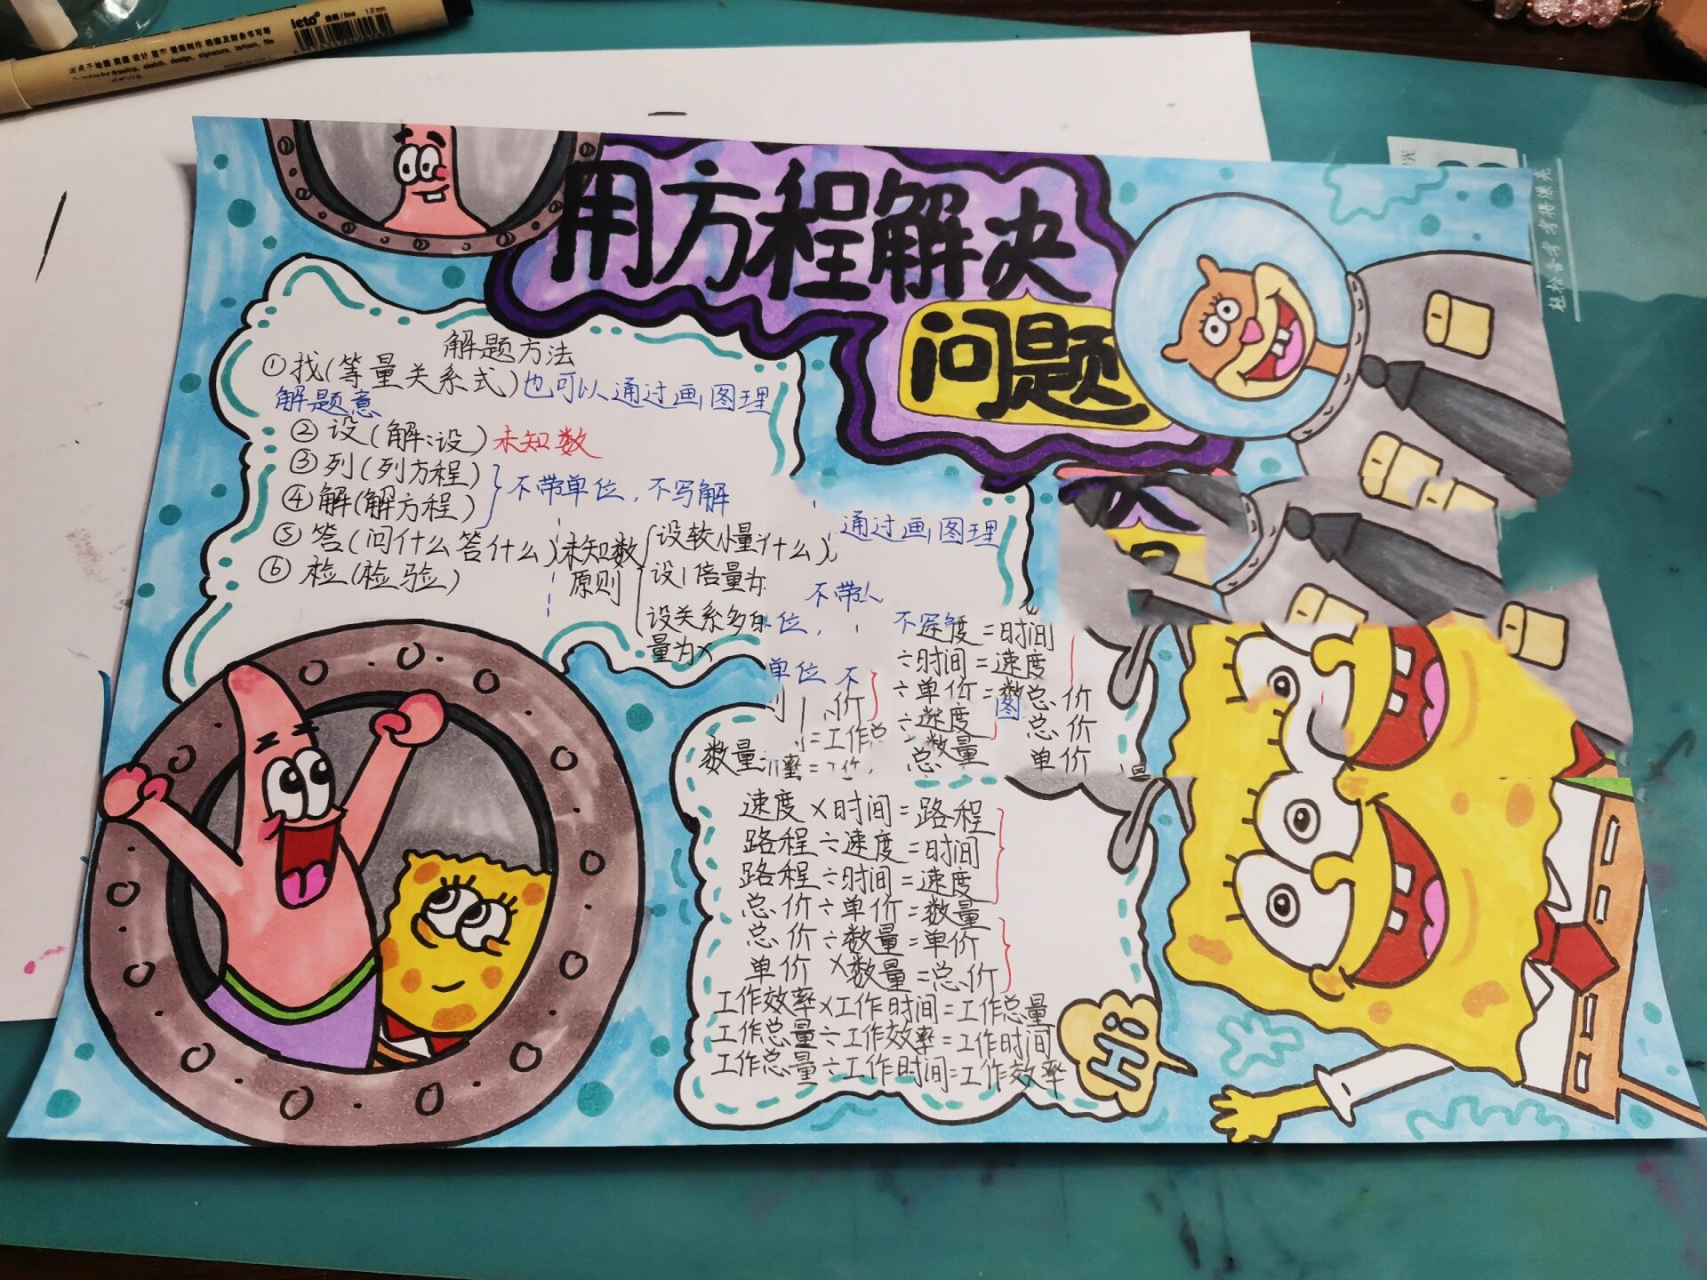 leto
用方程解决
问题
解题方法
①找(等量关系式)也可以通过画图理
解题意
②设(解:设)未知数
③列(列方程)
④解(解方程)
不带单位,不写解
⑤答(问什么答什么)
⑥检(检验)
未知数
原则
设较小量什么)
设1倍量为
设关系多
量为x
通过画图理
不带
位,
单位 不
速度=时间
÷时间=速度
÷单价=数
总价
价
图
÷速度
总价
=工作总
数量
÷数量
总
单价
率=
速度×时间=路程
路程÷速度=时间
路程÷时间=速度
总价÷单价=数量
总价÷数量=单价
单价×数量=总价
工作效率×工作时间=工作总量
工作总量÷工作效率=工作时间
工作总量÷工作时间=工作效率
Hi